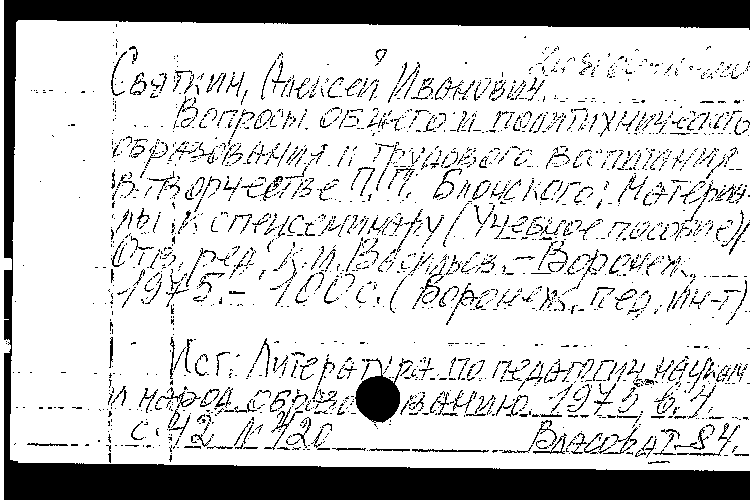 Святкин, Алексей Иванович.
Вопросы общего и политихнического
образования и трудового воспитания
в творчестве П.П. Блонского: Материа-
лы к спецсеминару (Учебное пособие)/
Отв. ред. К.И. Васильев. – Воронеж,
1975. – 100 с. (Воронеж. пед. ин-т)
Ист: Литература по педагогич наукам
и народ образованию. 1975, в. 4.
с. 42 N 420 Власова Т. 84.